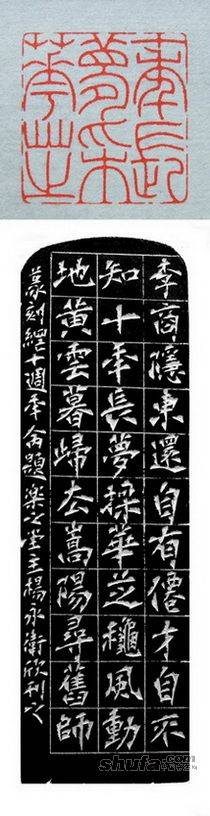 十年長
夢采
華芝
李商隱東還自有僊才自不
知十年長夢採華芝穐風動
地黃雲暮歸去嵩陽尋舊師
篆刻經十週年題樂之堂主楊永衛欣刊之
shufa.com